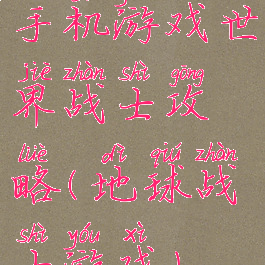 手机游戏世
jiè zhàn shì gōng
界战士攻
lüè dì qiú zhàn
略(地球战
shì yóu xì
士游戏)